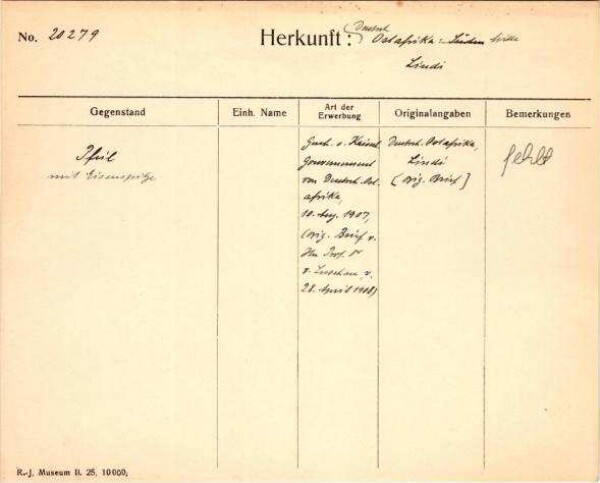 No. 20279
Herkunft: Deutsch
Ostafrika: Süden
Lindi
Gegenstand
Einh. Name
Art der
Erwerbung
Originalangaben
Bemerkungen
Pfeil
mit Eisenspitze
Gesch. v. Kaiserl.
Gouvernement
von Deutsch-Ost-
afrika,
10. Aug. 1907,
(orig. Brief v.
Hn Prof. Dr
v. Luschan, v.
28. April 1908)
Deutsch. Ostafrika,
Lindi
(orig. Brief]
fehlt
R.-J. Museum II. 25. 10000.